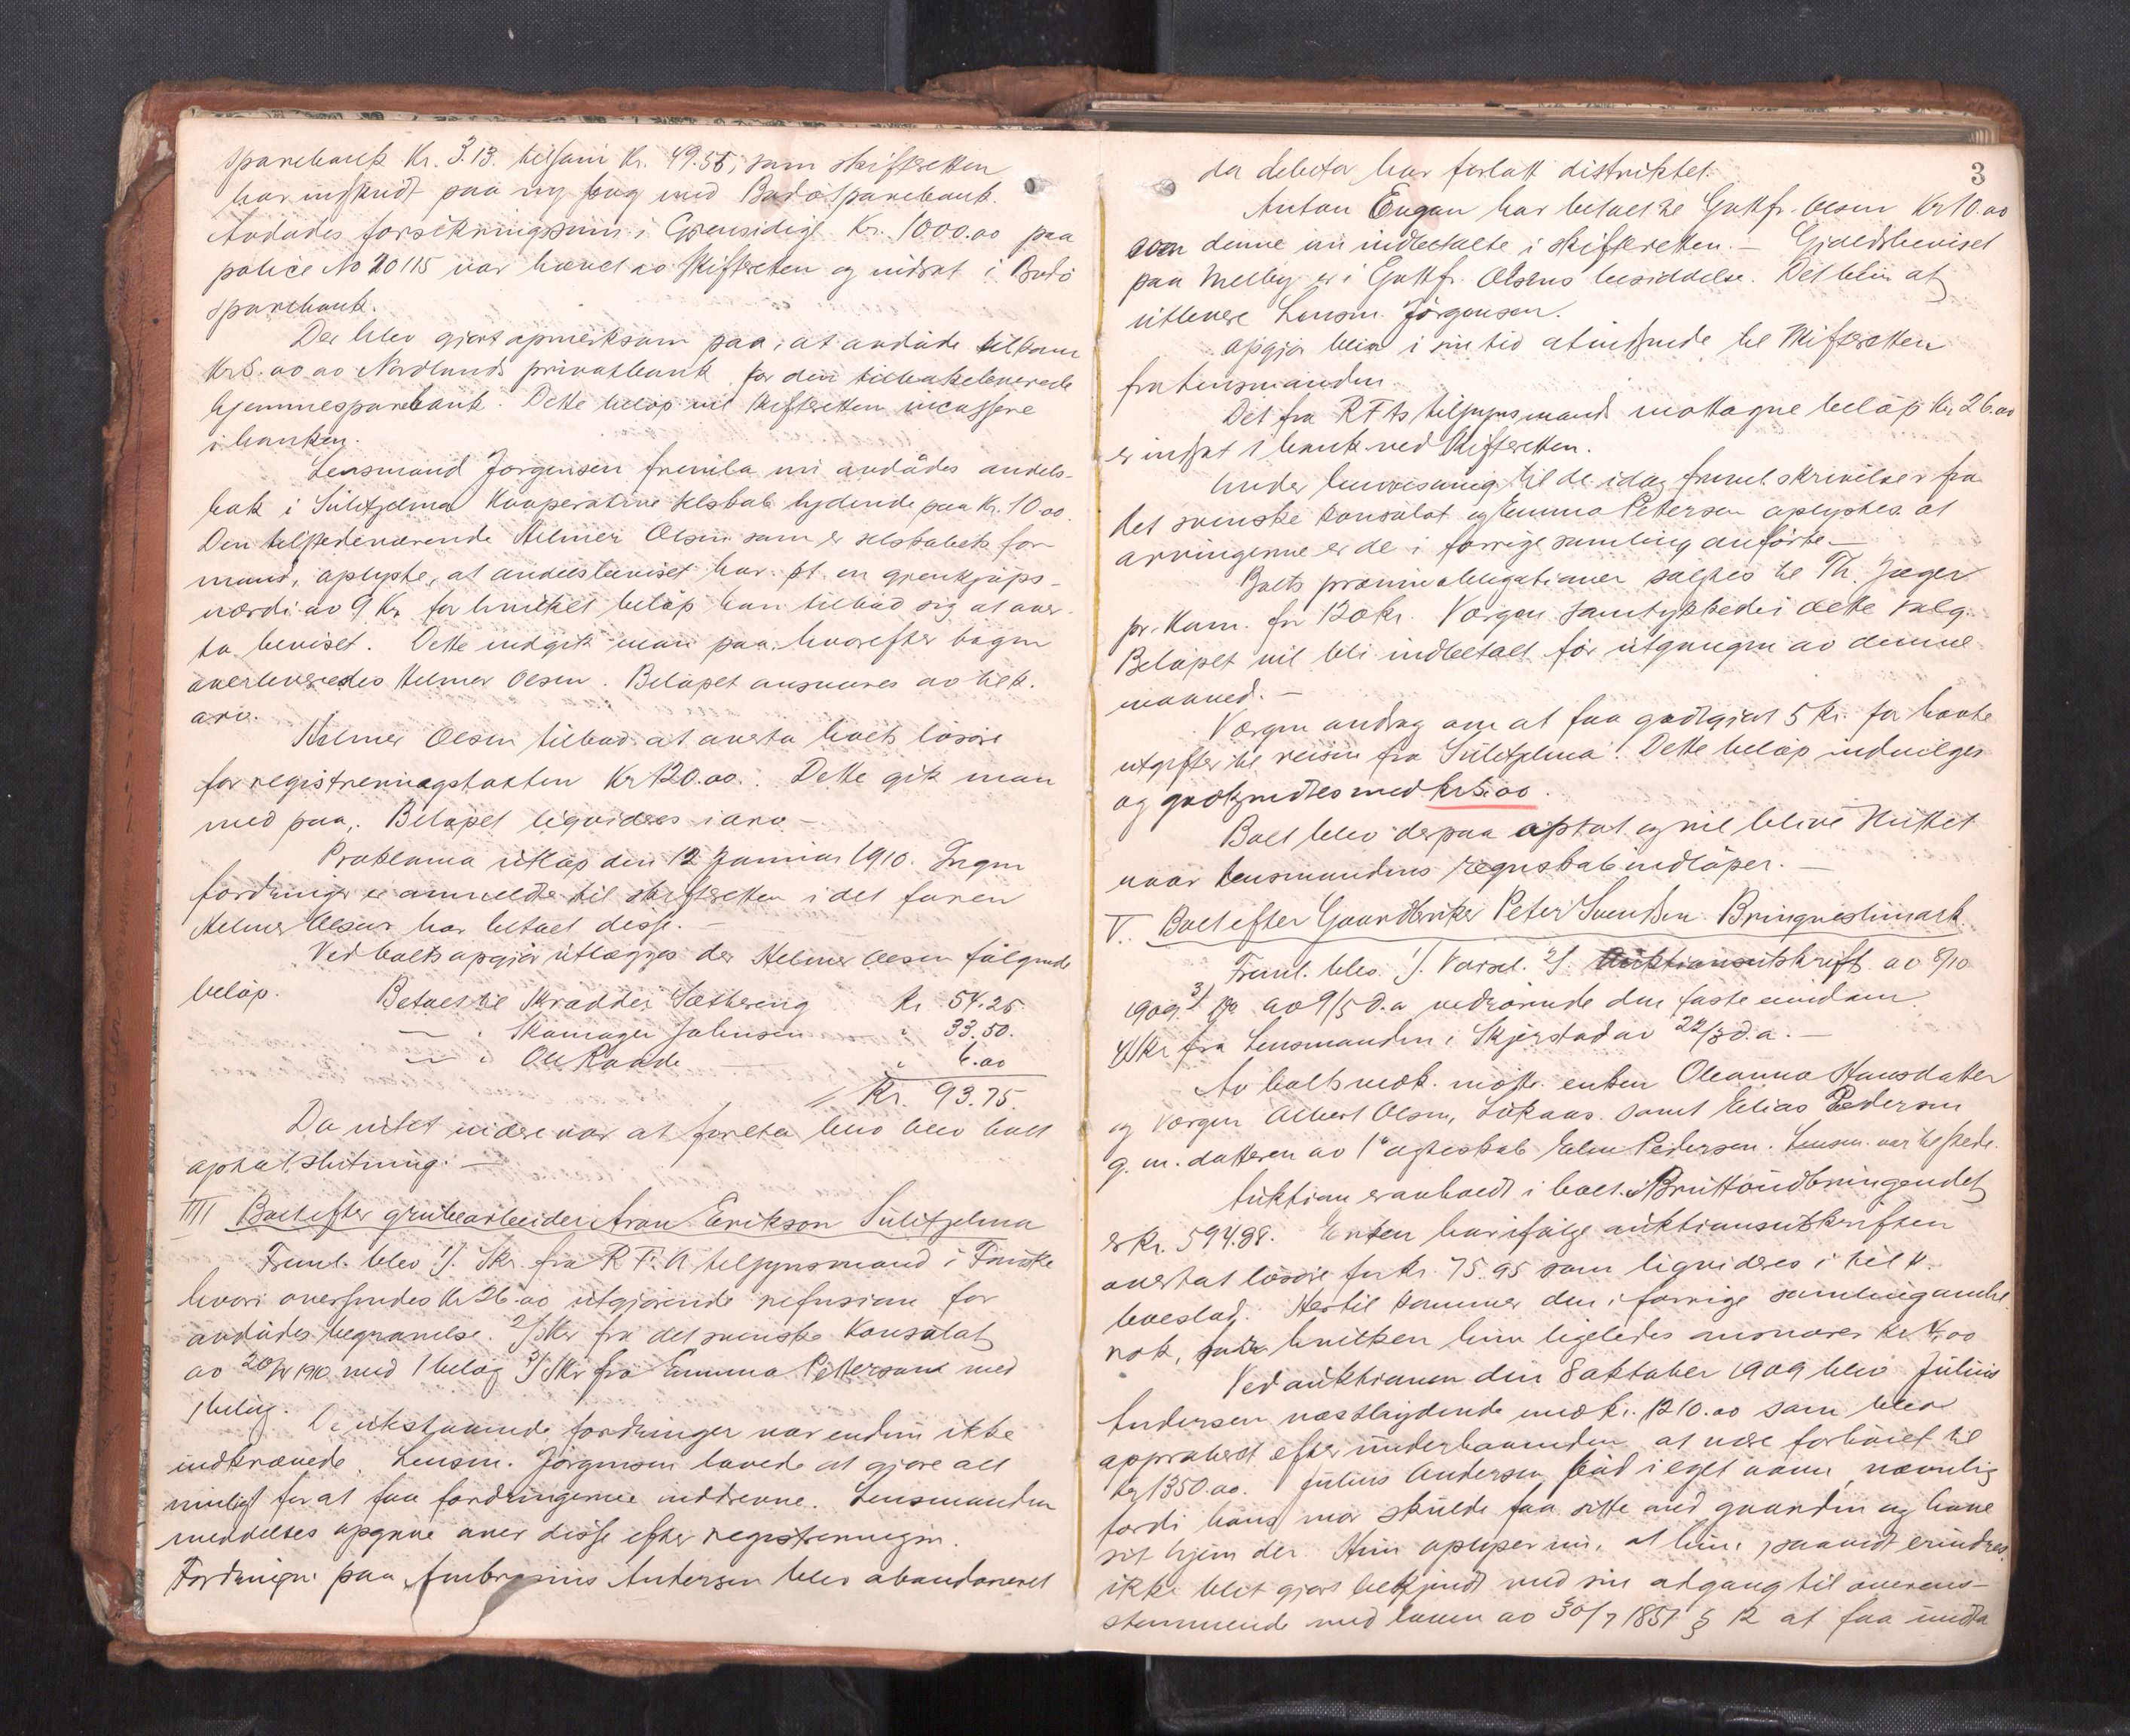 sparebank Kr. 3.13. tilsam Kr. 49.55, som skifteretten
har indskudt paa ny bog med Bodø Sparebank.
Avdødes forsikringssum i Gjensidige Kr. 1000.00 paa
police No 20115 var hævet av skifteretten og indsat i Bodø
sparebank.
Der blev gjort opmerksom paa, at avdøde tilkom
Kr 5.00 av Nordlands privatbank for den tilbakeleverede
hjemmesparebank. Dette beløp vil skifteretten incassere
i banken.
Lensmand Jørgensen fremla nu avdødes andels-
bok i Sulitjelma Kooperative selskab lydende paa Kr. 10.00.
Den tilstedeværende Helmer Olsen som er selskabets for-
mand, oplyste, at andelsbeviset har pt. en gjenkjøps-
værdi av 9 Kr for hvilket beløp han tilbød sig at over-
ta beviset. Dette indgik man paa, hvorefter bogen
overleveredes Helmer Olsen. Beløpet ansvares av tilk.
arv.
Helmer Olsen tilbød at overta boets løsøre
for registreringstaksten Kr 120.00. Dette gik man
med paa. Beløpet liquideres i arv.-
Proklama utløp den 12 Januar 1910. Ingen
fordringer er anmeldte til skifteretten i det faren
Helmer Olsen har betalt disse.-
Ved boets opgjør utlægges der Helmer Olsen følgende
beløp. Betalt til Skrædder Sæthering Kr. 54.25
— " Skomager Johnsen " 33.50.
— " Ole Raade " 6.00
Kr. 93.75.
Da intet videre var at foreta blev boet
optat til slutning.—
IIII Boet efter grubearbeider Aron Erikson Sulitjelma
Freml. blev 1). Skr. fra R.F.A tilsynsmand i Fauske
hvori oversendes Kr 26.00 utgjørende refusion for
avdødes begravelse. 2/ Skr fra det svenske Konsulat
av 1910 med 1 bilag 3/ Skr fra Emma Petterson med
1 bilag.
De utestaaende fordringer var endnu ikke
indkrævede. Lensm. Jørgensen lovede at gjøre alt
muligt for at faa fordringerne inddrevne. Lensmanden
meddeltes opgave over disse efter registreringen.
Fordringen paa Ambrosius Andersen blev abandoneret
3
da debitor har forlatt distriktet.
Anton Engan har betalt til Gottfr. Olsen Kr 10.00
som denne nu indbetalte i skifteretten.— Gjældsbeviset
paa Melby er i Gottfr. Olsens besiddelse. Det blir at
utlevere Lensm. Jørgensen.
Opgjør blir i sin tid at indsende til skifteretten
fra lensmanden.
Det fra R.F.As tilsynsmand mottagne beløp Kr. 26.00
er indsat i bank ved skifteretten.
Under henvisning til de idag freml. skrivelser fra
det svenske konsulat og Emma Petterson oplystes at
arvingerne er de i forrige samling anførte.—
Boets præmieobligationer solgtes til Th. Jæger
pr. kom. for 120 kr. Vergen samtykkede i dette salg.
Beløpet vil bli indbetalt før utgangen av denne
maaned.—
Vergen androg om at faa godtgjort 5 Kr. for havte
utgifter til reisen fra Sulitjelma. Dette beløp indvilges
og godkjendtes med kr 5.00.
Boet blev derpaa optat og vil blive sluttet
naar lensmandens regnskab indløper.—
V. Boet efter Gaardbruker Peter Svendsen Bringneslimark
Freml. blev 1). Varsel. 2/ Auktionsutskrift av 8/10
1909. 3/ av 9/5 d.a vedrørende den faste eiendom
4/ Skr fra Lensmanden i Skjerstad av 22/3 d.a.—
Av boets vedk. møtte enken Oleanna Hansdatter
og vergen Albert Olsen, samt Elias Pedersen
g. m. datteren av 1ste egteskab Elen Pedersen. Lensm. var tilstede.
Auktion er avholdt i boet. Bruttoutbringendet
er Kr. 594.98. Enken har ifølge auktionsutskriften
overtat løsøre for kr 75.95 som liquideres i tilk.
boeslod. Hertil kommer den i forrige samling omhl.
rok, for hvilken hun ligeledes ansvares kr 4.00
Ved auktionen den 8 oktober 1909 blev Julius
Andersen næstbydende med kr. 1210.00 som blev
approbert efter underhaanden at være forhøiet til
Kr 1350.00. Julius Andersen bød i eget navn, nemlig
fordi hans mor skulde faa sitte med gaarden og have
sit hjem der. Hun oplyser nu, at hun, saavidt erindres,
ikke blit gjort bekjendt med sin adgang til overens-
stemmende med loven av 30/7 1851 § 12 at faa undta